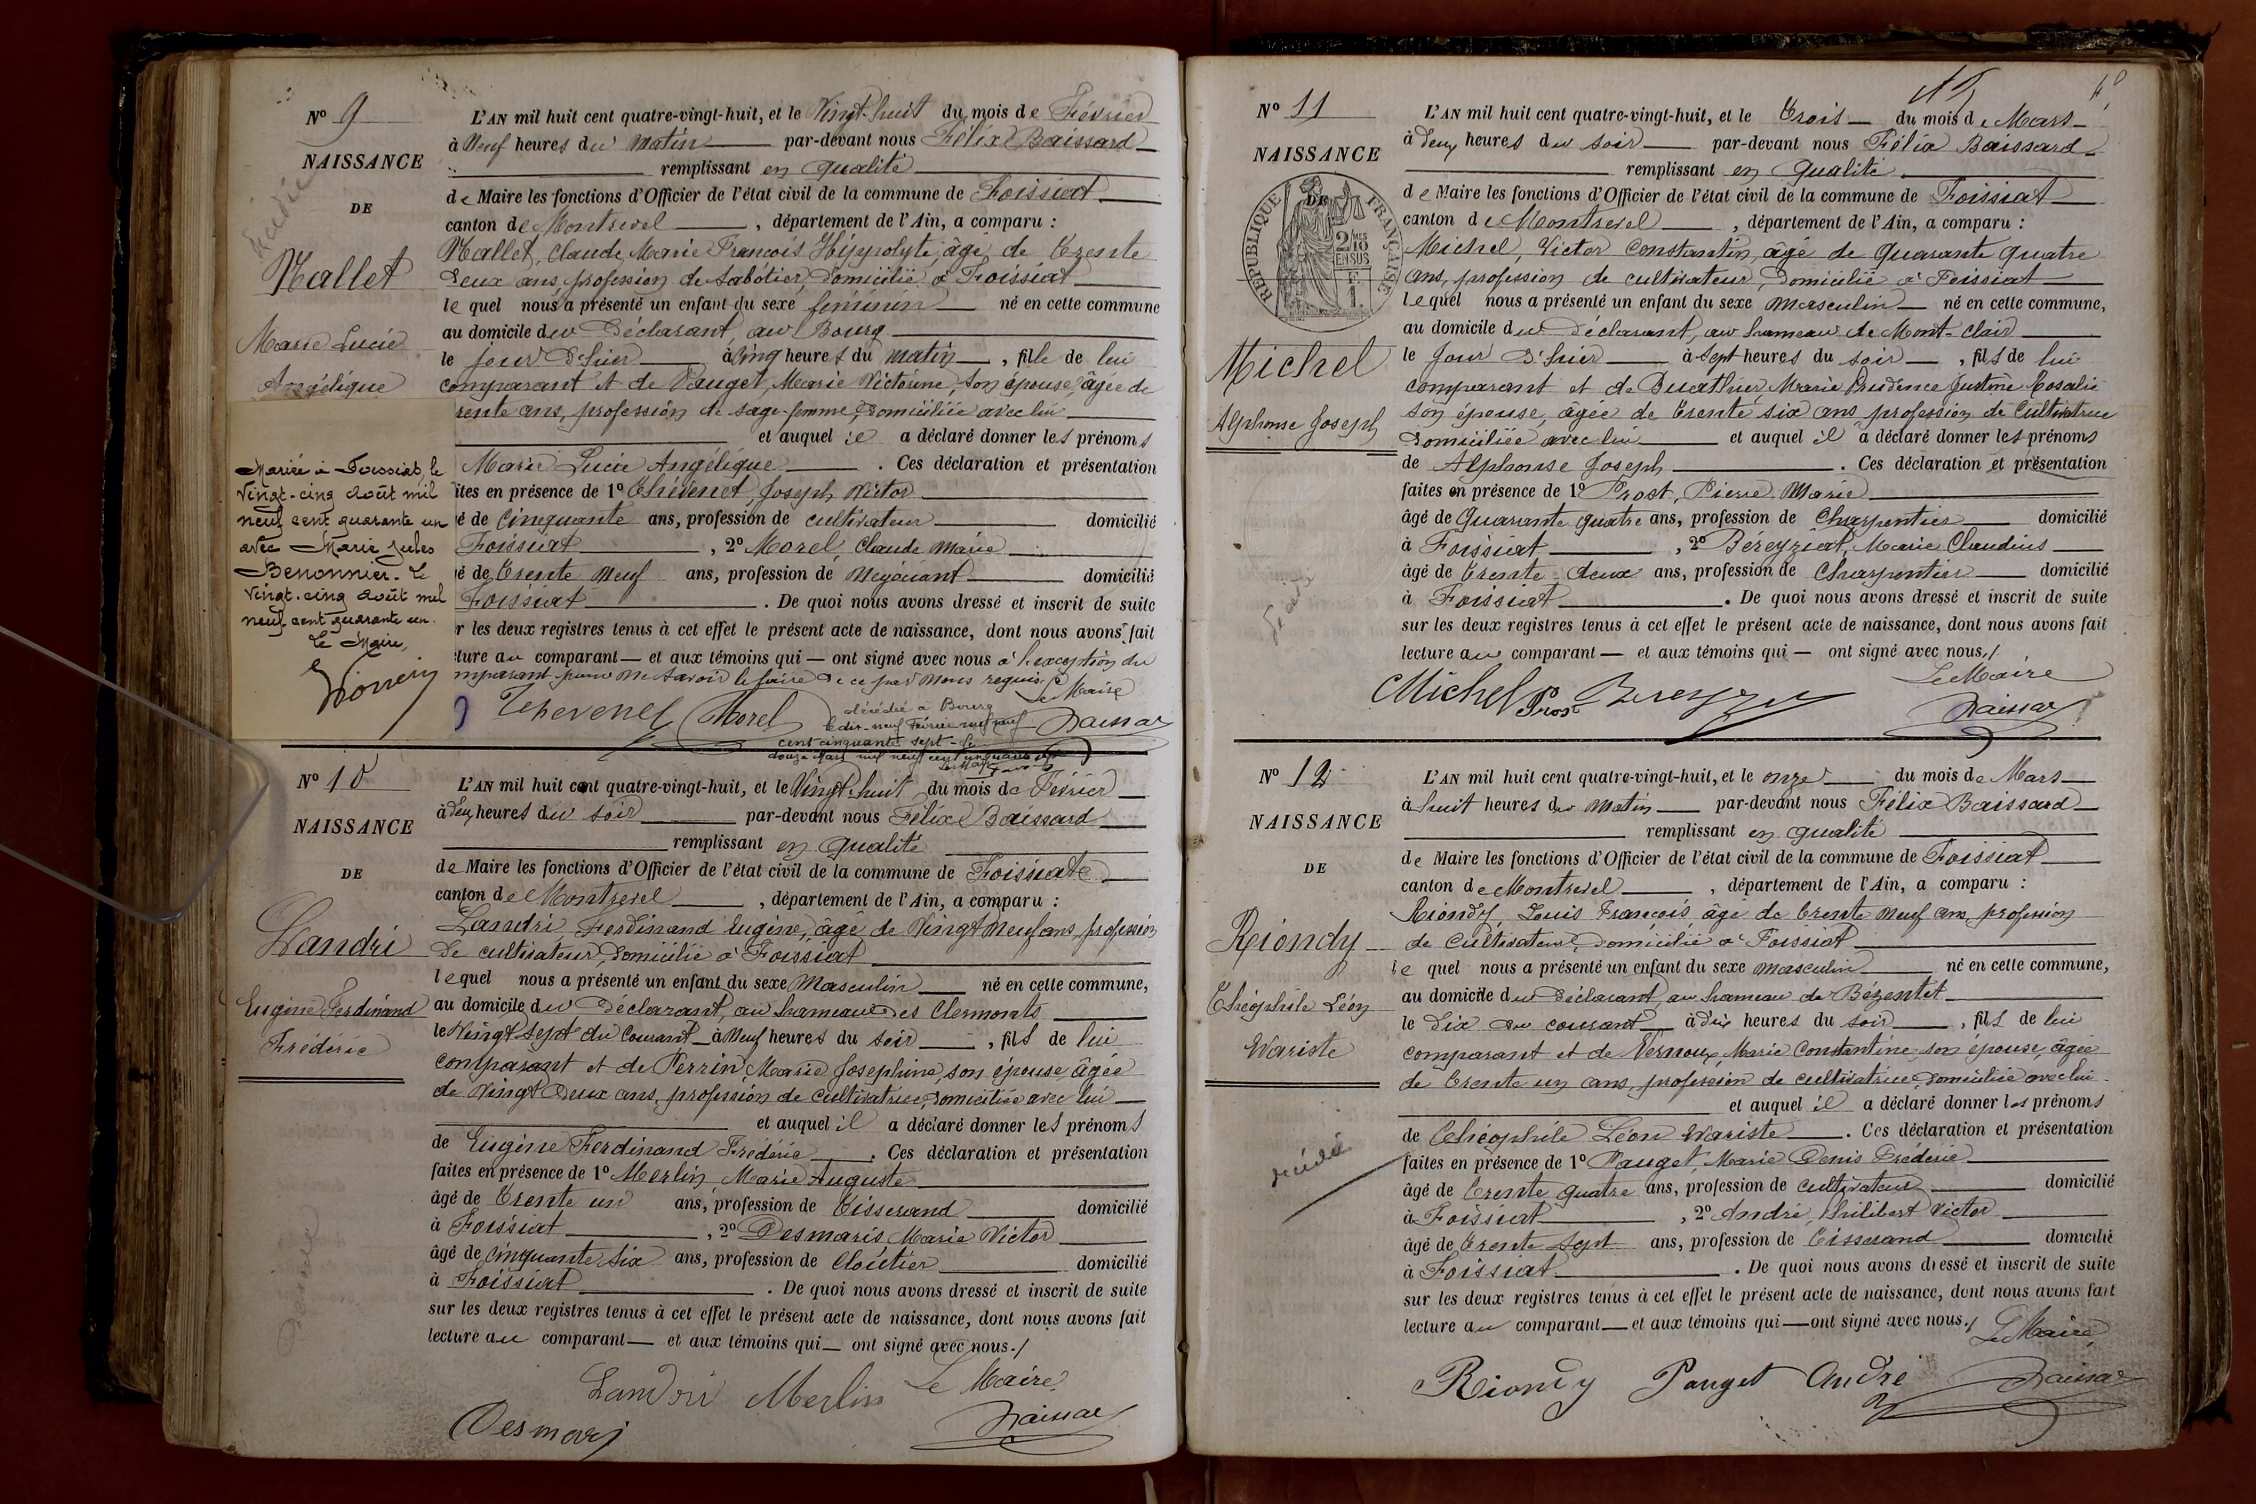 Nº 9
NAISSANCE
DE
Mallet
Marie Lucie
Angélique
L'AN mil huit cent quatre-vingt-huit, et le Vingt-huit du mois de Février
à Neuf heures du matin par-devant nous Félix Baissard
remplissant en qualité
de Maire les fonctions d'Officier de l'état civil de la commune de Foissiat
canton de Montrevel, département de l'Ain, a comparu :
Mallet, Claude Marie François Hippolyte, âgé de Trente
deux ans, profession de Sabotier, domicilié à Foissiat
lequel nous a présenté un enfant du sexe féminin né en cette commune
au domicile du Déclarant, au Bourg
le jour d'hier à cinq heures du matin, fille de lui
comparant et de Pauget, Marie Victorine, son épouse, âgée de
rente ans, profession de sage-femme, domiciliée avec lui
et auquel il a déclaré donner les prénoms
Marie Lucie Angélique. Ces déclaration et présentation
ites en présence de 1º Thévenet, Joseph Victor
é de Cinquante ans, profession de cultivateur domicilié
Foissiat, 2º Morel, Claude Marie
é de Trente Neuf ans, profession de Négociant domicilié
Foissiat. De quoi nous avons dressé et inscrit de suite
r les deux registres tenus à cet effet le présent acte de naissance, dont nous avons fait
cture au comparant et aux témoins qui ont signé avec nous à l'exception du
mparant pour ne savoir le faire de ce par nous requis
Le Maire
Thevenet Morel Baissard
décédée à Bourg
le dix-neuf Février mil neuf
cent cinquante sept - le
douze Mars mil neuf cent cinquante sept
Le Maire
Mariée à Foissiat, le
vingt-cinq août mil
neuf cent quarante un
avec Marie Jules
Benonnier. Le
vingt-cinq août mil
neuf cent quarante un.
Le Maire,
Nº 10
NAISSANCE
DE
Landri
Eugène Ferdinand
Fréderic
L'AN mil huit cent quatre-vingt-huit, et le Vingt-huit du mois de Février
à deux heures du soir par-devant nous Félix Baissard
remplissant en qualité
de Maire les fonctions d'Officier de l'état civil de la commune de Foissiat
canton de Montrevel, département de l'Ain, a comparu :
Landri Ferdinand Eugène, âgé de Vingt Neuf ans, profession
de cultivateur, domicilié à Foissiat
lequel nous a présenté un enfant du sexe Masculin né en cette commune,
au domicile du Déclarant, au hameau des Clermonts
le Vingt sept du Courant à Neuf heures du soir, fils de lui
comparant et de Perrin, Marie Josephine, son épouse, âgée
de Vingt Deux ans, profession de cultivatrice, domiciliée avec lui
et auquel il a déclaré donner les prénoms
de Eugène Ferdinand Fréderic. Ces déclaration et présentation
faites en présence de 1º Merlin Marie Auguste
âgé de Trente un ans, profession de Tisserand domicilié
à Foissiat, 2º Desmaris Marie Victor
âgé de Cinquante six ans, profession de Cloutier domicilié
à Foissiat. De quoi nous avons dressé et inscrit de suite
sur les deux registres tenus à cet effet le présent acte de naissance, dont nous avons fait
lecture au comparant et aux témoins qui ont signé avec nous./
Landri Merlin Le Maire
Desmaris Baissard
Nº 11
NAISSANCE
DE
RÉPUBLIQUE FRANÇAISE
2/10 EN SUS
Michel
Alphonse Joseph
L'AN mil huit cent quatre-vingt-huit, et le Trois du mois de Mars
à deux heures du soir par-devant nous Félix Baissard
remplissant en qualité
de Maire les fonctions d'Officier de l'état civil de la commune de Foissiat
canton de Montrevel, département de l'Ain, a comparu :
Michel, Victor Constantin, âgé de Quarante quatre
ans, profession de cultivateur, domicilié à Foissiat
lequel nous a présenté un enfant du sexe masculin né en cette commune,
au domicile du Déclarant, au hameau de Mont-Clair
le Jour d'hier à sept heures du soir, fils de lui
comparant et de Buathier, Marie Prudence Justine Rosalie
son épouse, âgée de trente six ans, profession de Cultivatrice
domiciliée avec lui et auquel il a déclaré donner les prénoms
de Alphonse Joseph. Ces déclaration et présentation
faites en présence de 1º Prost, Pierre Marie
âgé de Quarante quatre ans, profession de Charpentier domicilié
à Foissiat, 2º Béreyziat, Marie Claudius
âgé de Trente deux ans, profession de Charpentier domicilié
à Foissiat. De quoi nous avons dressé et inscrit de suite
sur les deux registres tenus à cet effet le présent acte de naissance, dont nous avons fait
lecture au comparant et aux témoins qui ont signé avec nous./
Le Maire
Michel Prost Bereyziat Baissard
Nº 12
NAISSANCE
DE
Riondy
Théophile Léon
Wariste
décédé
L'AN mil huit cent quatre-vingt-huit, et le onze du mois de Mars
à huit heures du matin par-devant nous Félix Baissard
remplissant en qualité
de Maire les fonctions d'Officier de l'état civil de la commune de Foissiat
canton de Montrevel, département de l'Ain, a comparu :
Riondy, Louis François âgé de trente neuf ans, profession
de Cultivateur, domicilié à Foissiat
le quel nous a présenté un enfant du sexe masculin né en cette commune,
au domicile du Déclarant, au hameau de Bézentet
le Dix du courant à dix heures du soir, fils de lui
comparant et de Vernoux, Marie Constantine, son épouse, âgée
de trente un ans, profession de cultivatrice, domiciliée avec lui
et auquel il a déclaré donner les prénoms
de Théophile Léon Wariste. Ces déclaration et présentation
faites en présence de 1º Pauget, Marie Denis Fréderic
âgé de Trente quatre ans, profession de cultivateur domicilié
à Foissiat, 2º André, Philibert Victor
âgé de Trente Sept ans, profession de Tisserand domicilié
à Foissiat. De quoi nous avons dressé et inscrit de suite
sur les deux registres tenus à cet effet le présent acte de naissance, dont nous avons fait
lecture au comparant et aux témoins qui ont signé avec nous./
Le Maire
Riondy Pauget André Baissard